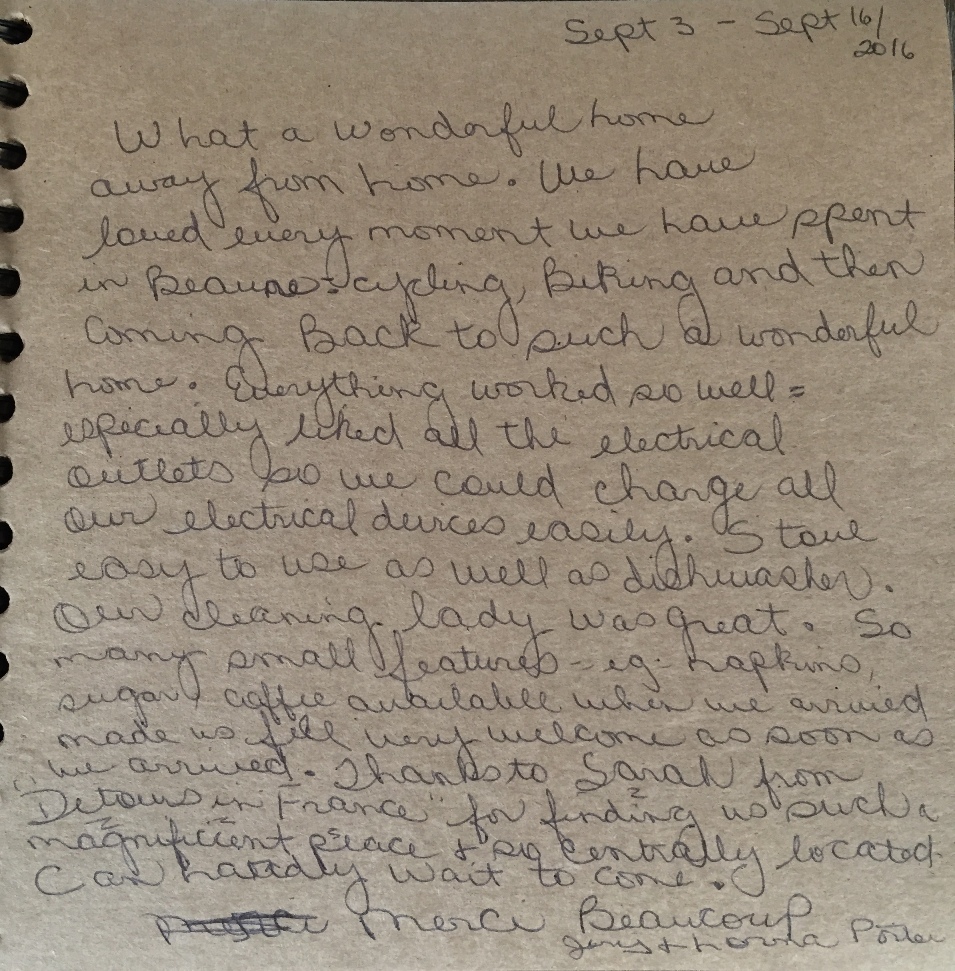 Sept 3 - Sept 16/
2016
What a wonderful home
away from home. We have
loved every moment we have spent
in Beaune: cycling, Biking and then
Coming Back to such a wonderful
home. Everything worked so well =
especially liked all the electrical
outlets so we could charge all
our electrical devices easily. Stove
easy to use as well as dishwasher.
Our cleaning lady was great. So
many small features - eg. napkins,
sugar, coffee available when we arrived
made us feel very welcome as soon as
we arrived. Thanks to Sarah from
"Detours in France" for finding us such a
magnificient place + so centrally located.
Can hardly wait to come.
Merci Beaucoup
+ Porter